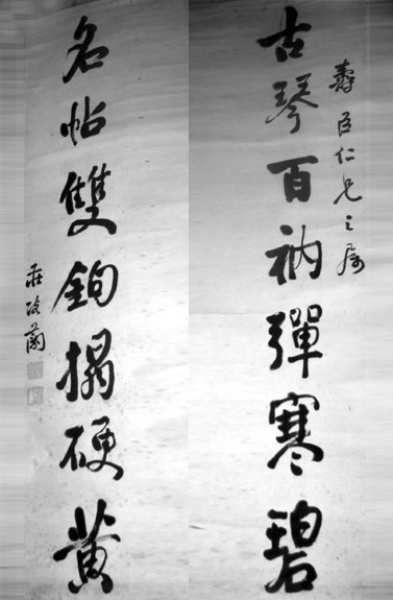 壽臣仁兄之属
古琴百衲彈寒碧
名帖雙鉤搨硬黃
莊陔蘭